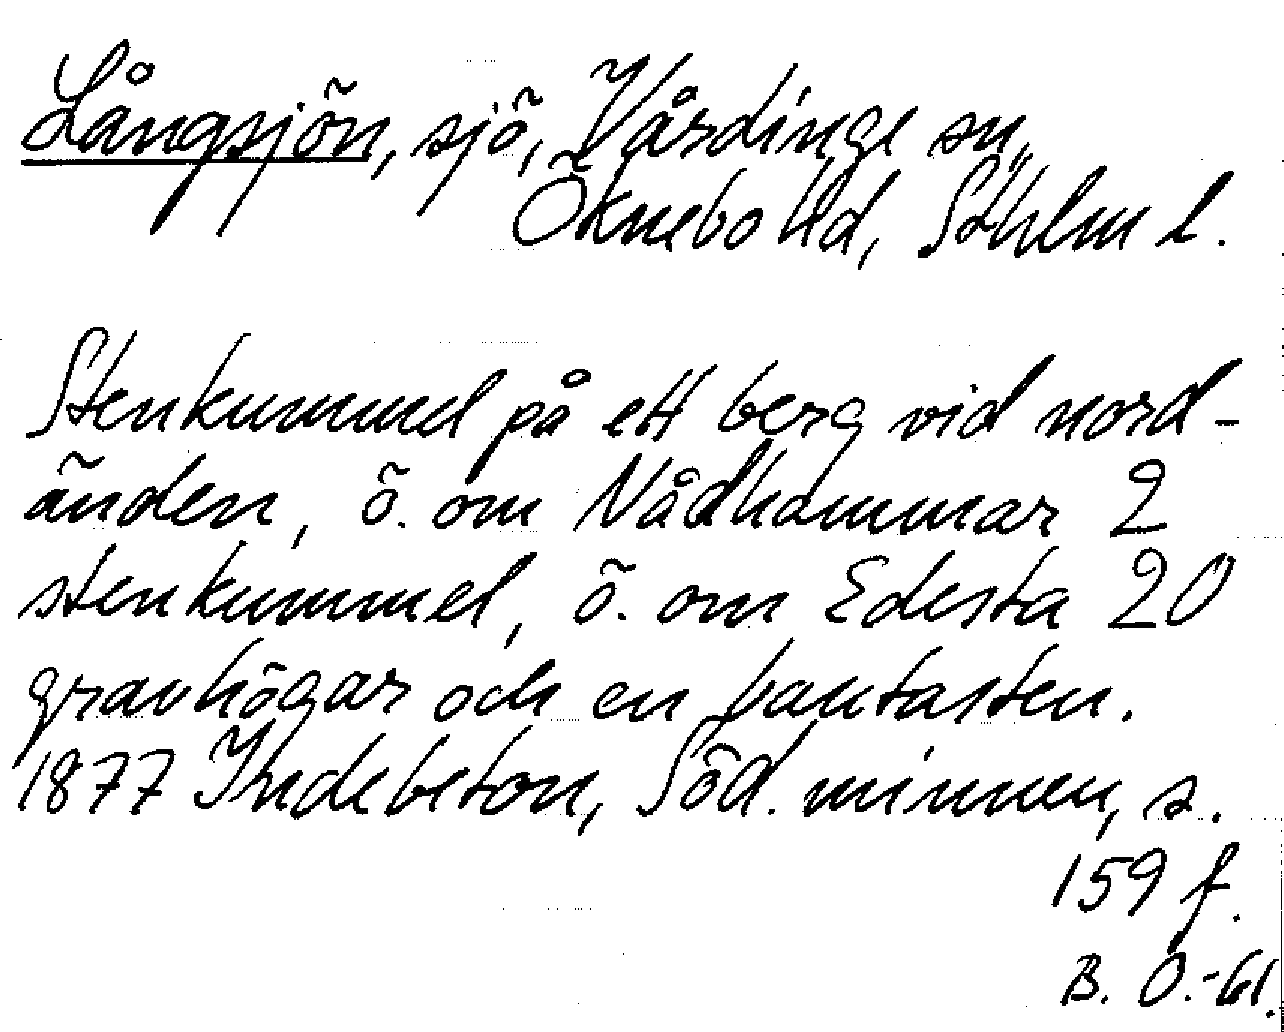 Långsjön, sjö, Vårdinge sn,
Öknebo hd, Sthlm l.
Stenkummel på ett berg vid nord-
änden, ö. om Nådhammar 2
stenkummel, ö. om Edesta 20
gravhögar och en bautasten.
1877 Indebetou, Söd. minnen, s.
159 f.
B. O.-61.